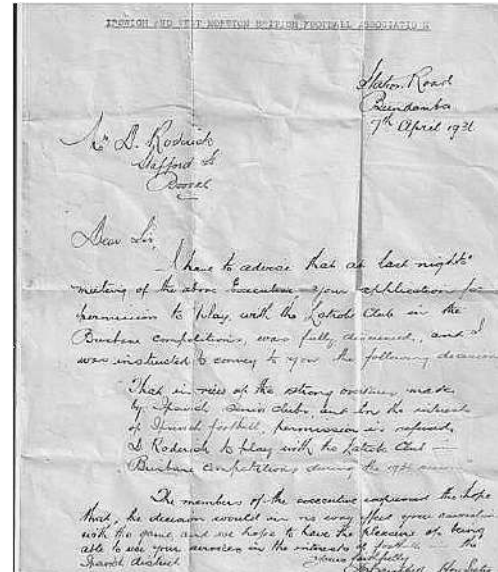 IPSWICH AND WEST MORETON BRITISH FOOTBALL ASSOCIATION
Station Road
Bundamba
7th April 1931
Mr D. Roderick
Stafford St
Booval
Dear Sir,
I have to advise that at last night's
meeting of the above Executive your application for
permission to play with the Latrobe Club in the
Brisbane competitions, was fully discussed, and I
was instructed to convey to you the following decision
That in view of the strong overtures made
by Ipswich senior clubs, and in the interests
of Ipswich football, permission is refused
D Roderick to play with the Latrobe Club in
Brisbane Competitions during the season
The members of the executive expressed the hope
that, the decision would in no way affect your association
with the game, and we hope to have the pleasure of being
able to use your services in the interests of football in the
Ipswich district
Yours faithfully
Hon Secty